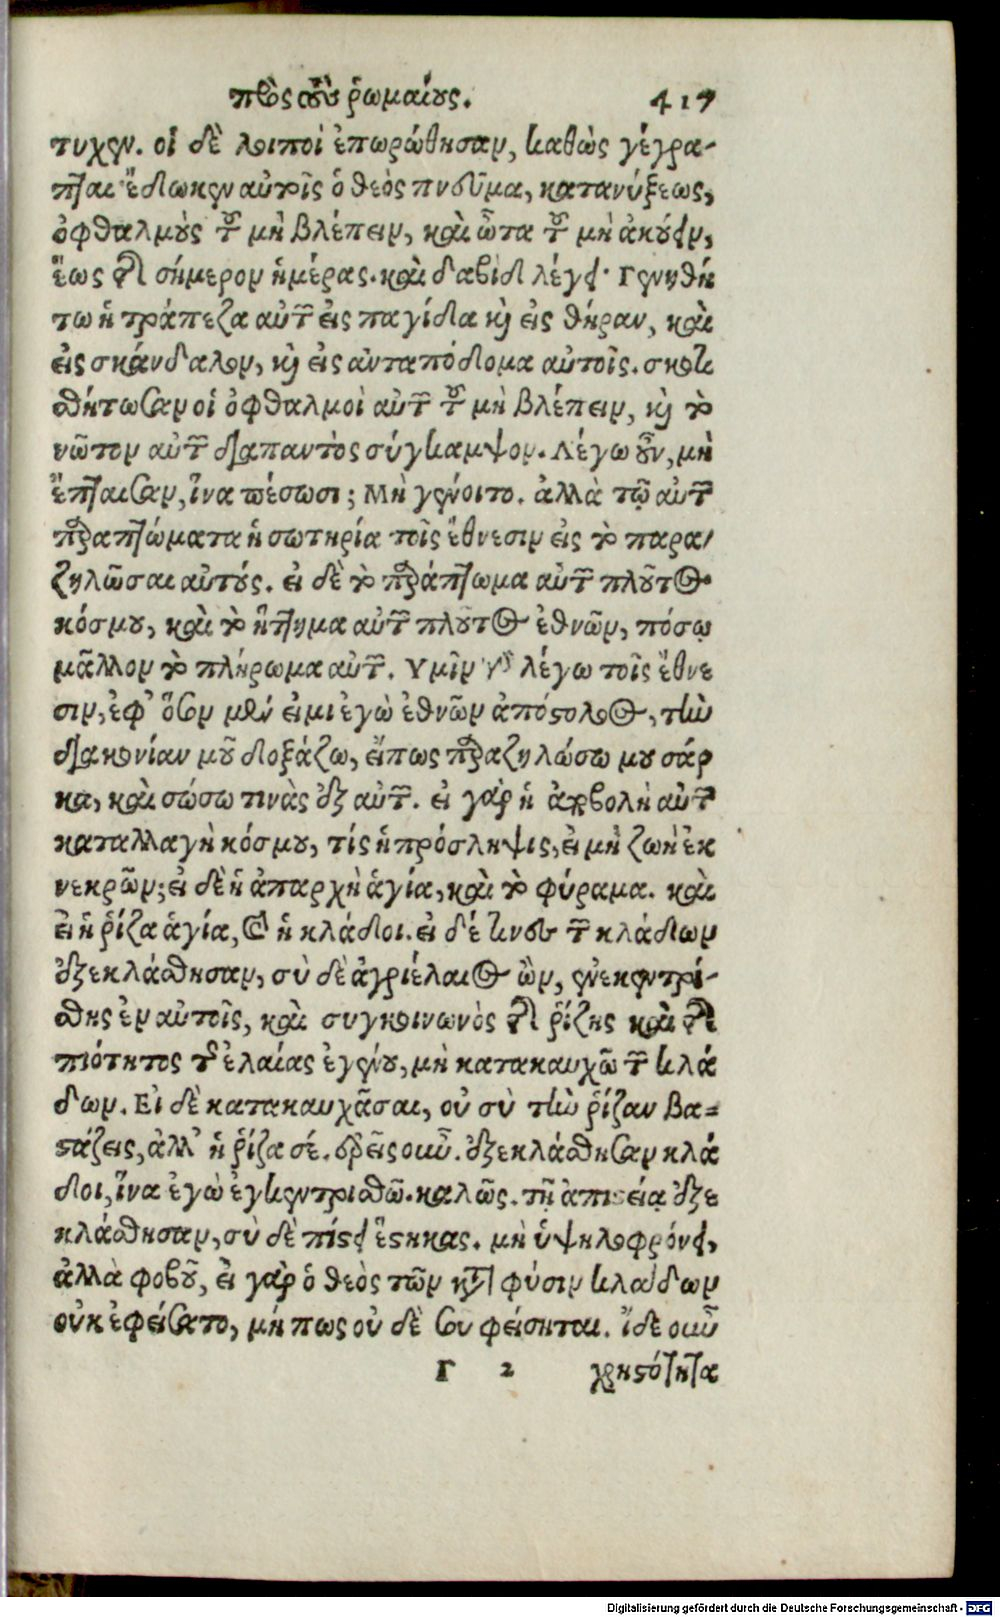 πρὸς τοὺς ῥωμαίους. 417
τυχεν. οἱ δὲ λοιποὶ ἐπωρώθησαν, καθὼς γέγρα-
πται ἔδωκεν αὐτοῖς ὁ θεὸς πνεῦμα, κατανύξεως,
ὀφθαλμοὺς τοῦ μὴ βλέπειν, καὶ ὦτα τοῦ μὴ ἀκούειν,
ἕως τῆς σήμερον ἡμέρας. καὶ δαβὶδ λέγει· Γενηθή
τω ἡ τράπεζα αὐτῶν εἰς παγίδα καὶ εἰς θήραν, καὶ
εἰς σκάνδαλον, καὶ εἰς ἀνταπόδομα αὐτοῖς. σκοτι
σθήτωσαν οἱ ὀφθαλμοὶ αὐτῶν τοῦ μὴ βλέπειν, καὶ τὸν
νῶτον αὐτῶν διαπαντὸς σύγκαμψον. Λέγω οὖν, μὴ
ἔπταισαν, ἵνα πέσωσι; Μὴ γένοιτο. ἀλλὰ τῷ αὐτῶν
παραπτώματα ἡ σωτηρία τοῖς ἔθνεσιν εἰς τὸ παρα-
ζηλῶσαι αὐτούς. εἰ δὲ τὸ παράπτωμα αὐτῶν πλοῦτος
κόσμου, καὶ τὸ ἥττημα αὐτῶν πλοῦτος ἐθνῶν, πόσῳ
μᾶλλον τὸ πλήρωμα αὐτῶν. Υμῖν γὰρ λέγω τοῖς ἔθνε
σιν, ἐφ' ὅσον μὲν εἰμι ἐγὼ ἐθνῶν ἀπόστολος, τὴν
διακονίαν μοῦ δοξάζω, εἴπως παραζηλώσω μου σάρ
κα, καὶ σώσω τινὰς ἐξ αὐτῶν. εἰ γάρ ἡ ἀποβολὴ αὐτῶν
καταλλαγὴ κόσμου, τίς ἡ πρόσληψις, εἰ μὴ ζωὴ ἐκ
νεκρῶν; εἰ δὲ ἡ ἀπαρχὴ ἁγία, καὶ τὸ φύραμα. καὶ
εἰ ἡ ῥίζα ἁγία, καὶ ἡ κλάδοι. εἰ δέ τινες τῶν κλάδων
ἐξεκλάσθησαν, σὺ δὲ ἀγριέλαιος ὢν, ἐνεκεντρί-
σθης ἐν αὐτοῖς, καὶ συγκοινωνὸς τῆς ῥίζης καὶ τῆς
πιότητος τῆς ἐλαίας ἐγένου, μὴ κατακαυχῶ τῶν κλά
δων. Εἰ δὲ κατακαυχᾶσαι, οὐ σὺ τὴν ῥίζαν βα=
στάζεις, ἀλλ' ἡ ῥίζα σέ. ἐρεῖς οὖν. ἐξεκλάσθησαν κλά
δοι, ἵνα ἐγὼ ἐγκεντρισθῶ. καλῶς. τῇ ἀπιστείᾳ ἐξε
κλάσθησαν, σὺ δὲ πίστει ἕστηκας. μὴ ὑψηλοφρόνει,
ἀλλὰ φοβοῦ, εἰ γὰρ ὁ θεὸς τῶν κατὰ φύσιν κλάδων
οὐκ ἐφείσατο, μή πως οὐ δὲ σου φείσηται. ἴδε οὖν
Γ 2 χρηστότητα
Digitalisierung gefördert durch die Deutsche Forschungsgemeinschaft - DFG